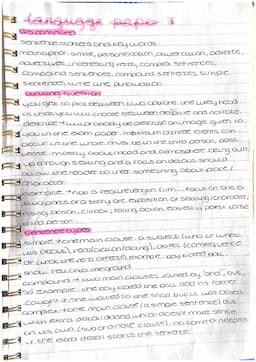 Language paper 1
Q5 continued
sentence starters and key words
metaphor, simile, personification, alliteration, adverbs,
adjectives, interesting verbs, complex sentences,
compound sentences, compound sentences, simple
sentences, time line, punctuation
question
you get to pick between two options. the likely hood
is that you will choose between narrative and
describe. will probably be described an image given to
you in the exam paper. maximum of three events can
occur in one week. write in the third person, past
tense. mostly about mood and atmosphere being built
up through setting and a focus on details should
allow the reader to infer something about place/
character.
narrative: *not a feature length film... focus on one to
two parts of a story arc: exposition or setting/climate,
rising action, climax, falling action. easiest in past tense
third person
Sentence types
simple → one main clause. a subject (who or what
its about), verb (action/doing), object (consequence
or what the verb affects). example: boy kicked ball,
snow fell onto the ground
compound → two main clauses, joined by 'and', but,
so. example: the boy kicked the ball and his father
caught it. she walked to the shop but it was closed
complex → one main clause (a simple sentence) but
with extra detail added which doesnt make sense
on its own (subordinate clause). no comma needed
if the extra detail starts the sentence